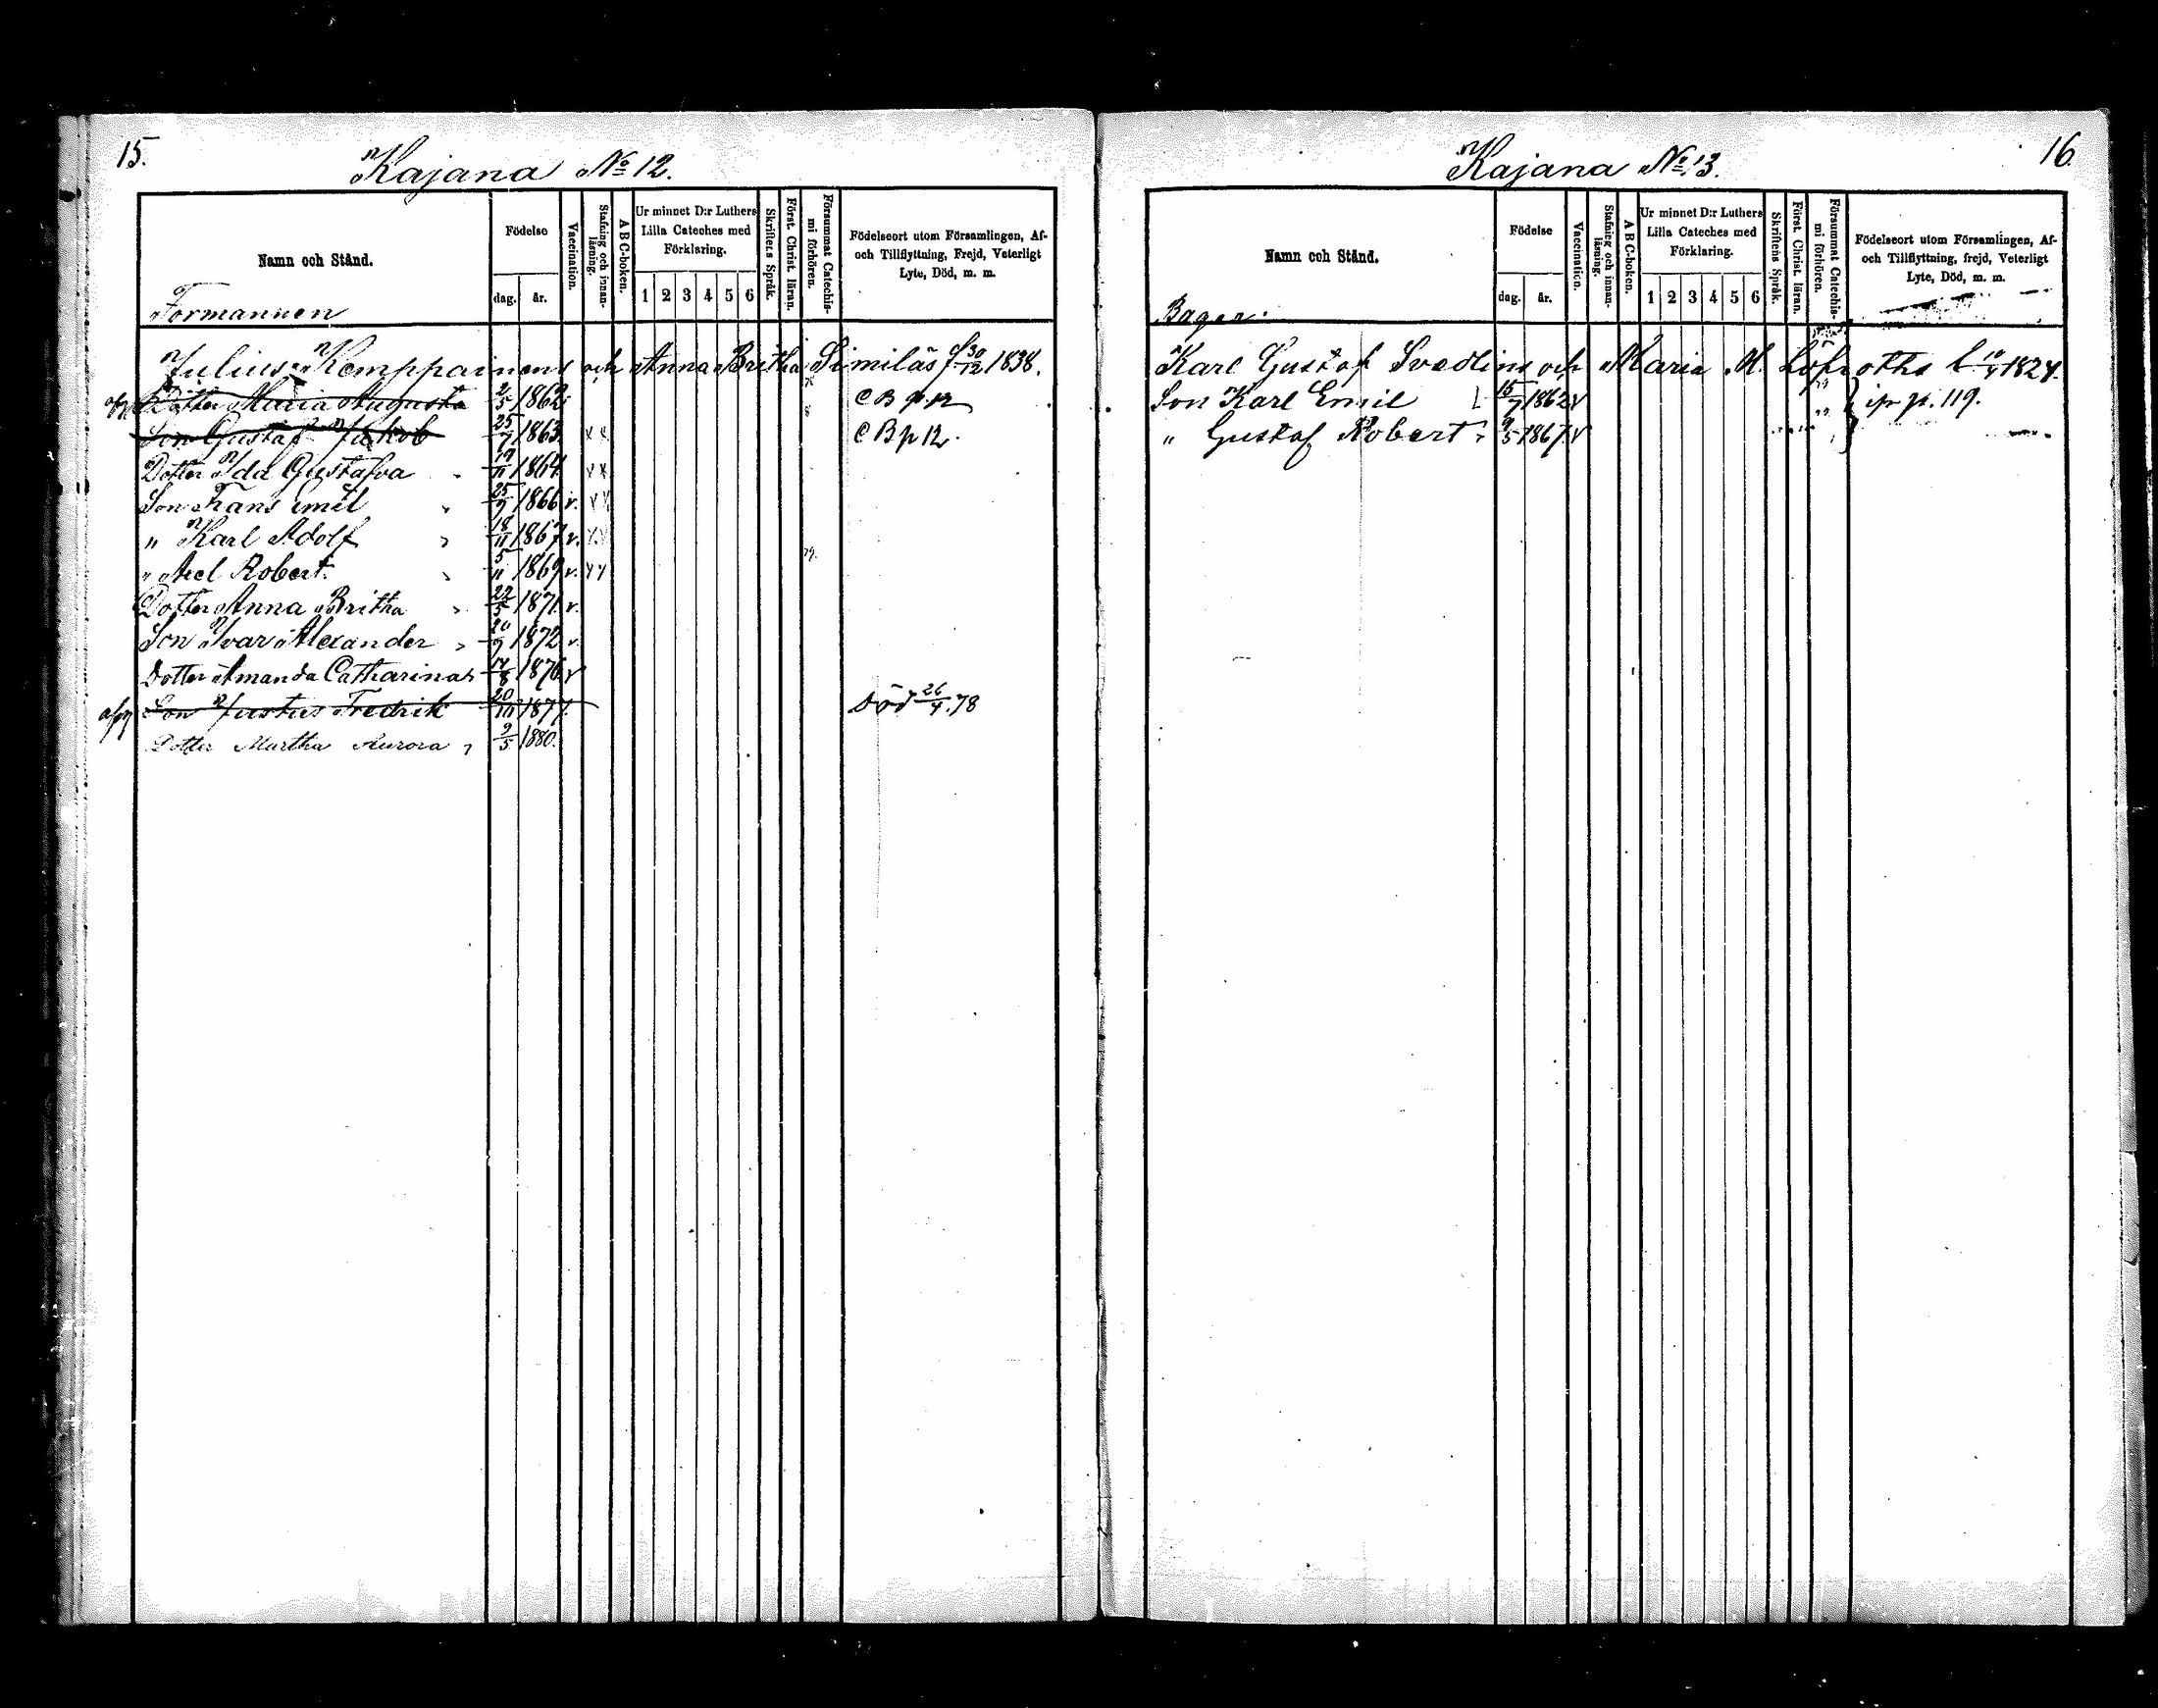 15.
Kajana No 12.
Namn och Stånd.
Födelse
dag. år.
Vaccination.
Stafning och innan-
läsning.
A B C-boken.
Ur minnet D:r Luthers
Lilla Cateches med
Förklaring.
1 2 3 4 5 6
Skriftens Språk.
Först. Christ. läran.
Försummat Catechis-
mi förhören.
Födelseort utom Församlingen, Af-
och Tillflyttning, Frejd, Veterligt
Lyte, Död, m. m.
Formannen
Julius Kemppainens och Anna Britha Similäs f 30/12 1838.
Dotter Maria Augusta 2/5 1862 C B p. 12
Son Gustaf Jakob 25/7 1863 x x C B p 12.
Dotter Ida Gustafva 17/11 1864 x x
Son Frans Emil " 25/9 1866 v. x x
" Karl Adolf " 18/11 1867 v. x x
" Axel Robert " 5/11 1869 v. x x
Dotter Anna Britha " 22/5 1871 v.
Son Ivar Alexander " 20/9 1872 v.
Dotter Amanda Catharina " 14/8 1876 v
Son Justus Fredrik 20/10 1877. Död 26/4.78
Dotter Martha Aurora " 9/5 1880.
16.
Kajana No 13.
Namn och Stånd.
Födelse
dag. år.
Vaccination.
Stafning och innan-
läsning.
A B C-boken.
Ur minnet D:r Luthers
Lilla Cateches med
Förklaring.
1 2 3 4 5 6
Skriftens Språk.
Först. Christ. läran.
Försummat Catechis-
mi förhören.
Födelseort utom Församlingen, Af-
och Tillflyttning, frejd, Veterligt
Lyte, Död, m. m.
Bagar.
Karl Gustaf Svedlins och Maria M. 1824.
Son Karl Emil 15/7 1862 v p. 119.
" Gustaf Robert " 9/5 1867 v